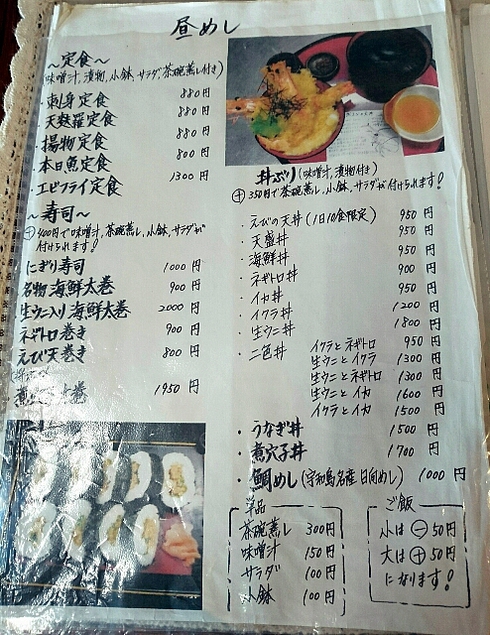 昼めし
～定食～
味噌汁,漬物,小鉢,サラダ,茶碗蒸し付き)
・刺身定食 880円
・天麩羅定食 880円
・揚物定食 880円
・本日魚定食 800円
・エビフライ定食 1300円
～寿司～
⊕400円で味噌汁,茶碗蒸し,小鉢,サラダが
付けられます!
・にぎり寿司 1000円
名物海鮮太巻 900円
生ウニ入り海鮮太巻 2000円
ネギトロ巻き 900円
えび天巻き 800円
太巻 1950円
丼ぶり(味噌汁,漬物付き)
⊕350円で茶碗蒸し,小鉢,サラダが付けられます!
・えびの天丼(1日10食限定) 950円
・天盛丼 950円
・海鮮丼 950円
・ネギトロ丼 900円
・イカ丼 950円
・イクラ丼 1200円
・生ウニ丼 1800円
・二色丼 イクラとネギトロ 950円
生ウニとイクラ 1300円
生ウニとネギトロ 1300円
生ウニとイカ 1600円
イクラとイカ 1500円
・うなぎ丼 1500円
・煮穴子丼 1700円
・鯛めし(宇和島名産日向めし) 1000円
単品
茶碗蒸し 300円
味噌汁 150円
サラダ 100円
小鉢 100円
ご飯
小は⊖50円
大は⊕50円
になります!